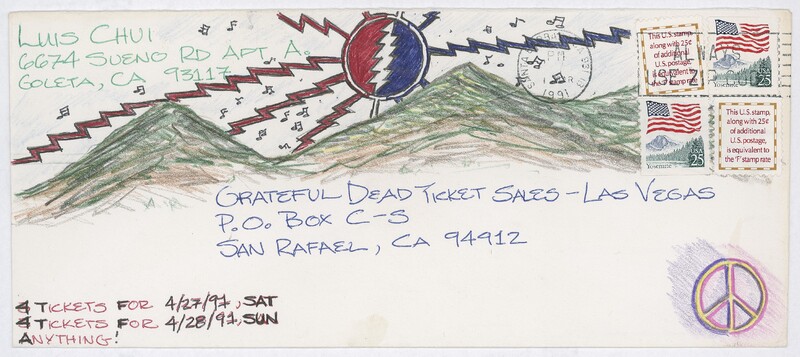 LUIS CHUI
6674 SUENO RD APT A.
GOLETA, CA 93117
1991
This U.S. stamp,
along with 25¢
of additional
U.S. postage,
is equivalent to
the 'F' stamp rate
USA
25
Yosemite
USA
25
Yosemite
This U.S. stamp,
along with 25¢
of additional
U.S. postage,
is equivalent to
the 'F' stamp rate
GRATEFUL DEAD TICKET SALES – LAS VEGAS
P.O. BOX C-S
SAN RAFAEL, CA 94912
4 TICKETS FOR 4/27/91, SAT
4 TICKETS FOR 4/28/91, SUN
ANYTHING!